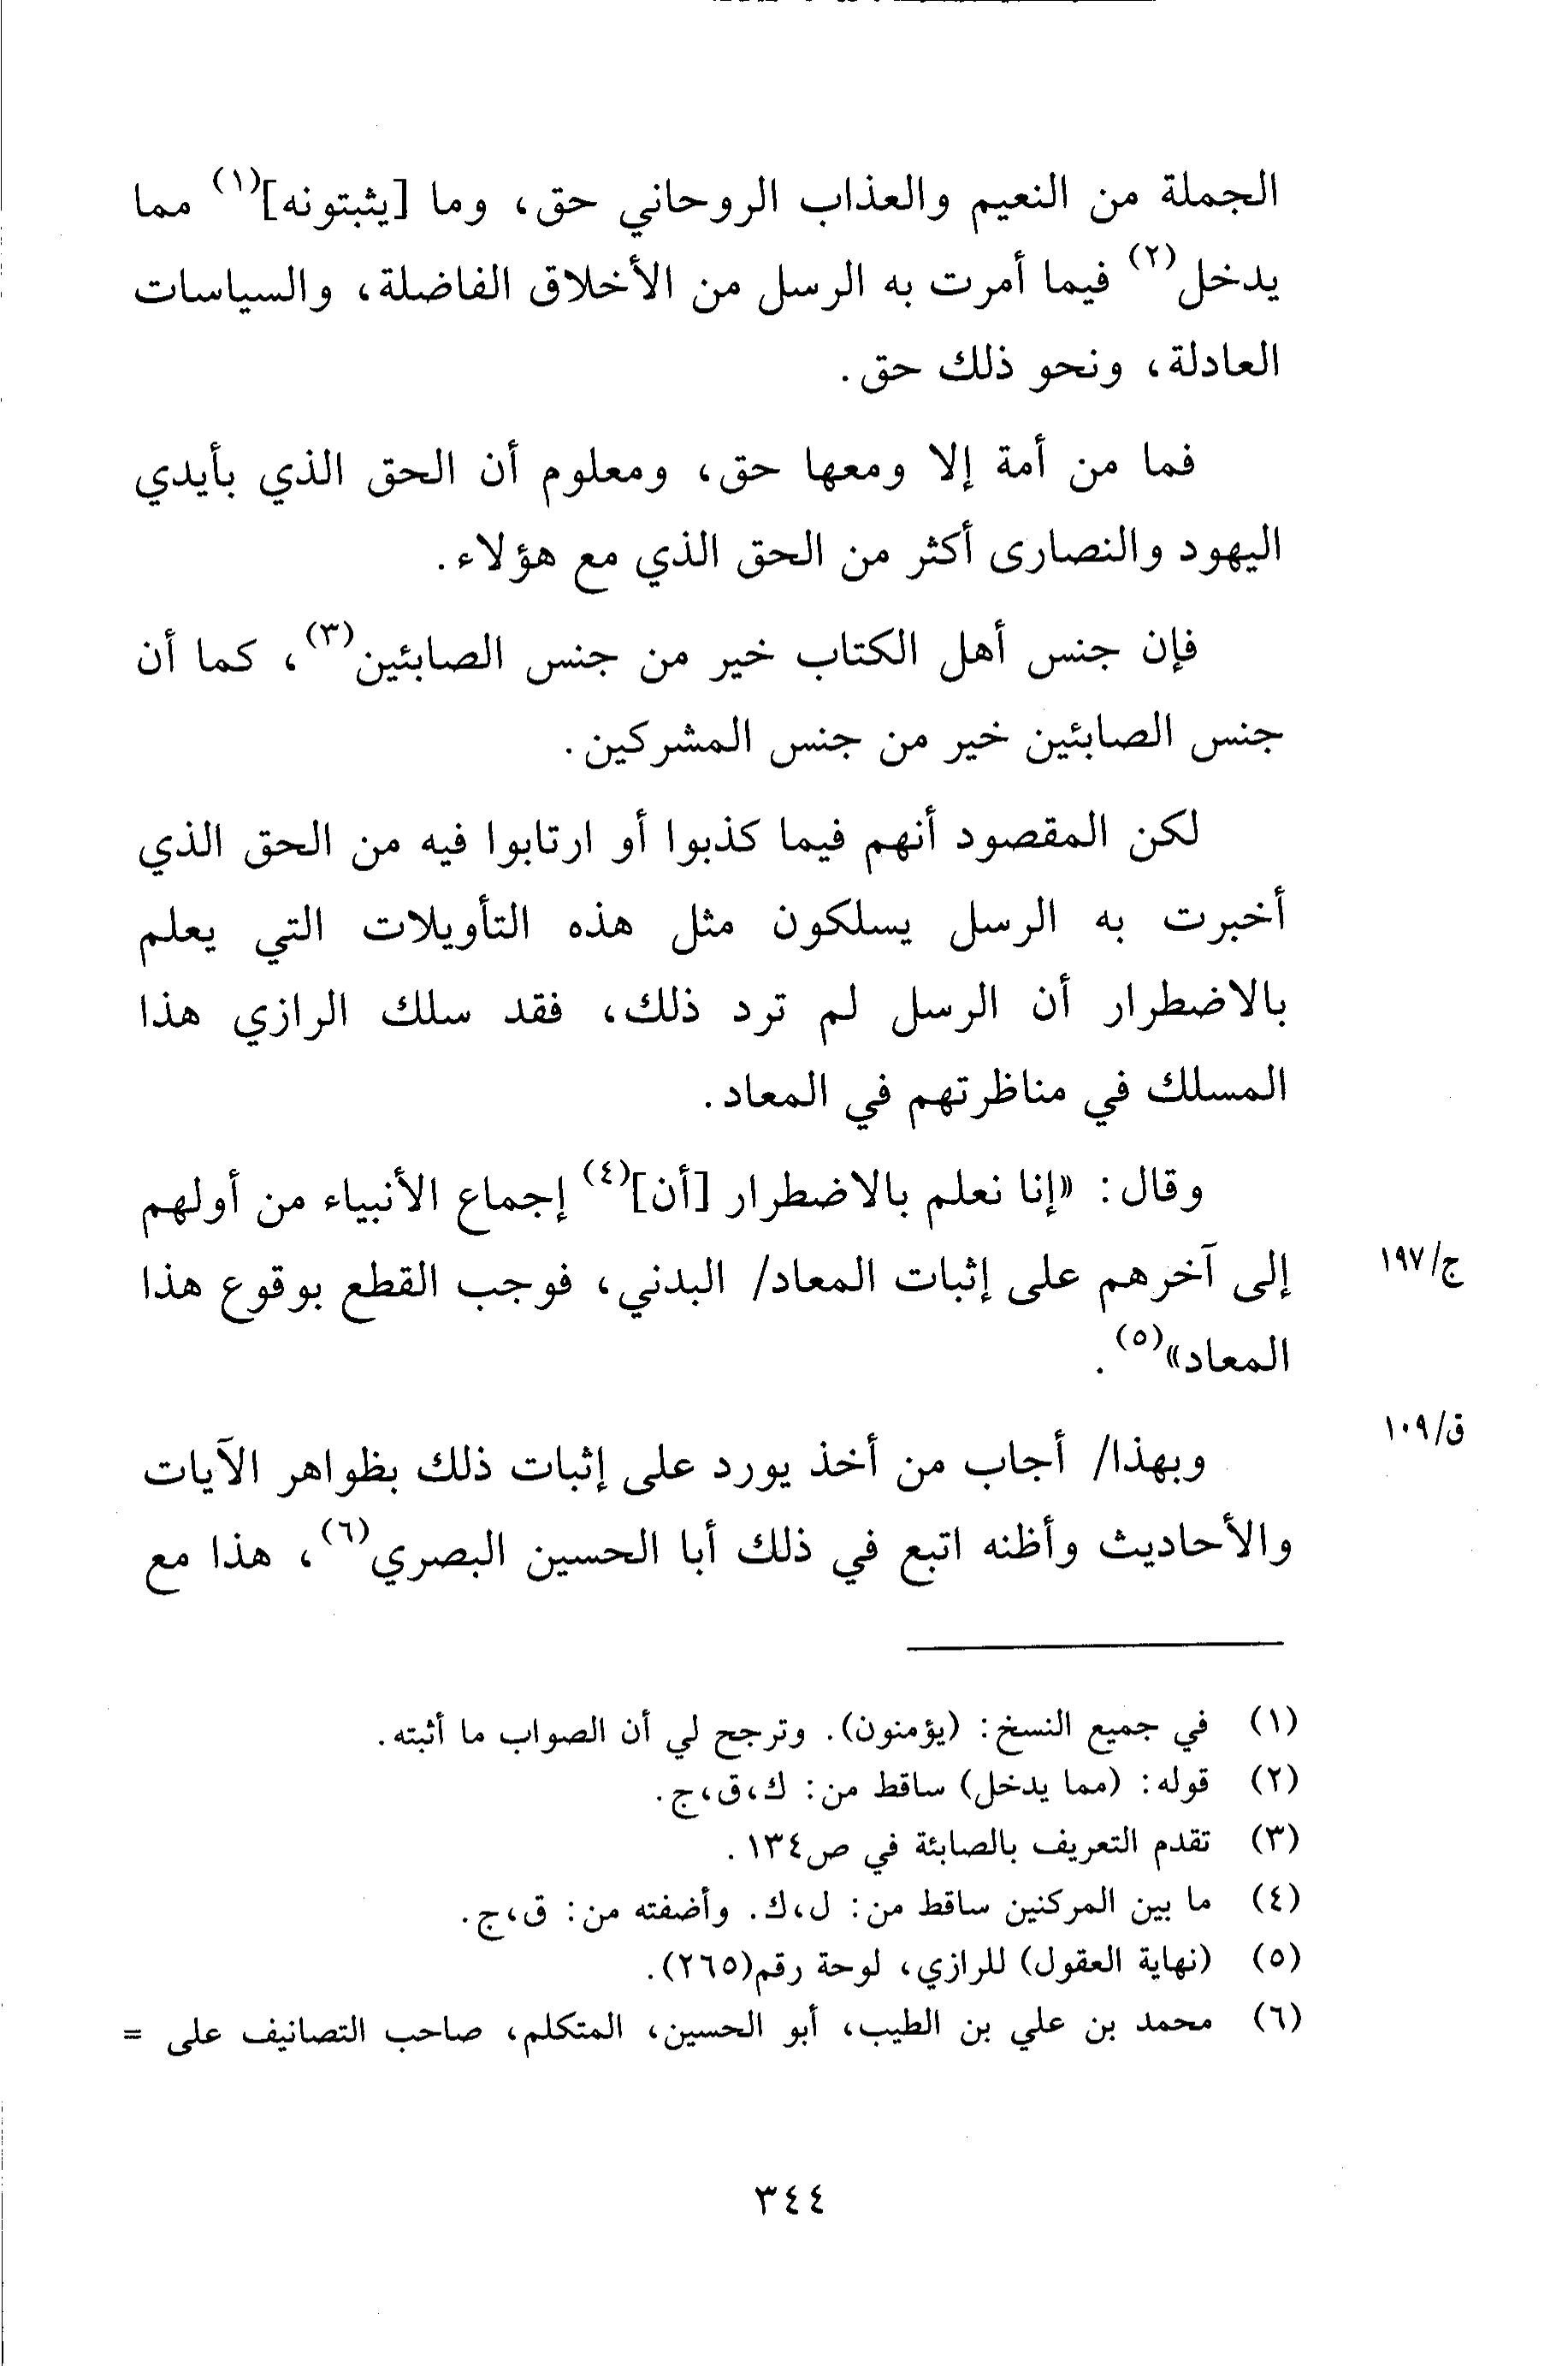 الجملة من النعيم والعذاب الروحاني حق، وما [يثبتونه](١) مما
يدخل(٢) فيما أمرت به الرسل من الأخلاق الفاضلة، والسياسات
العادلة، ونحو ذلك حق.
فما من أمة إلا ومعها حق، ومعلوم أن الحق الذي بأيدي
اليهود والنصارى أكثر من الحق الذي مع هؤلاء.
فإن جنس أهل الكتاب خير من جنس الصابئين(٣)، كما أن
جنس الصابئين خير من جنس المشركين.
لكن المقصود أنهم فيما كذبوا أو ارتابوا فيه من الحق الذي
أخبرت به الرسل يسلكون مثل هذه التأويلات التي يعلم
بالاضطرار أن الرسل لم ترد ذلك، فقد سلك الرازي هذا
المسلك في مناظرتهم في المعاد.
وقال: «إنا نعلم بالاضطرار [أن](٤) إجماع الأنبياء من أولهم
إلى آخرهم على إثبات المعاد/ البدني، فوجب القطع بوقوع هذا
ج/١٩٧
المعاد»(٥).
وبهذا/ أجاب من أخذ يورد على إثبات ذلك بظواهر الآيات
ق/١٠٩
والأحاديث وأظنه اتبع في ذلك أبا الحسين البصري(٦)، هذا مع
(١) في جميع النسخ: (يؤمنون). وترجح لي أن الصواب ما أثبته.
(٢) قوله: (مما يدخل) ساقط من: ك،ق،ج.
(٣) تقدم التعريف بالصابئة في ص١٣٤.
(٤) ما بين المركنين ساقط من: ل،ك. وأضفته من: ق،ج.
(٥) (نهاية العقول) للرازي، لوحة رقم(٢٦٥).
(٦) محمد بن علي بن الطيب، أبو الحسين، المتكلم، صاحب التصانيف على =
٣٤٤